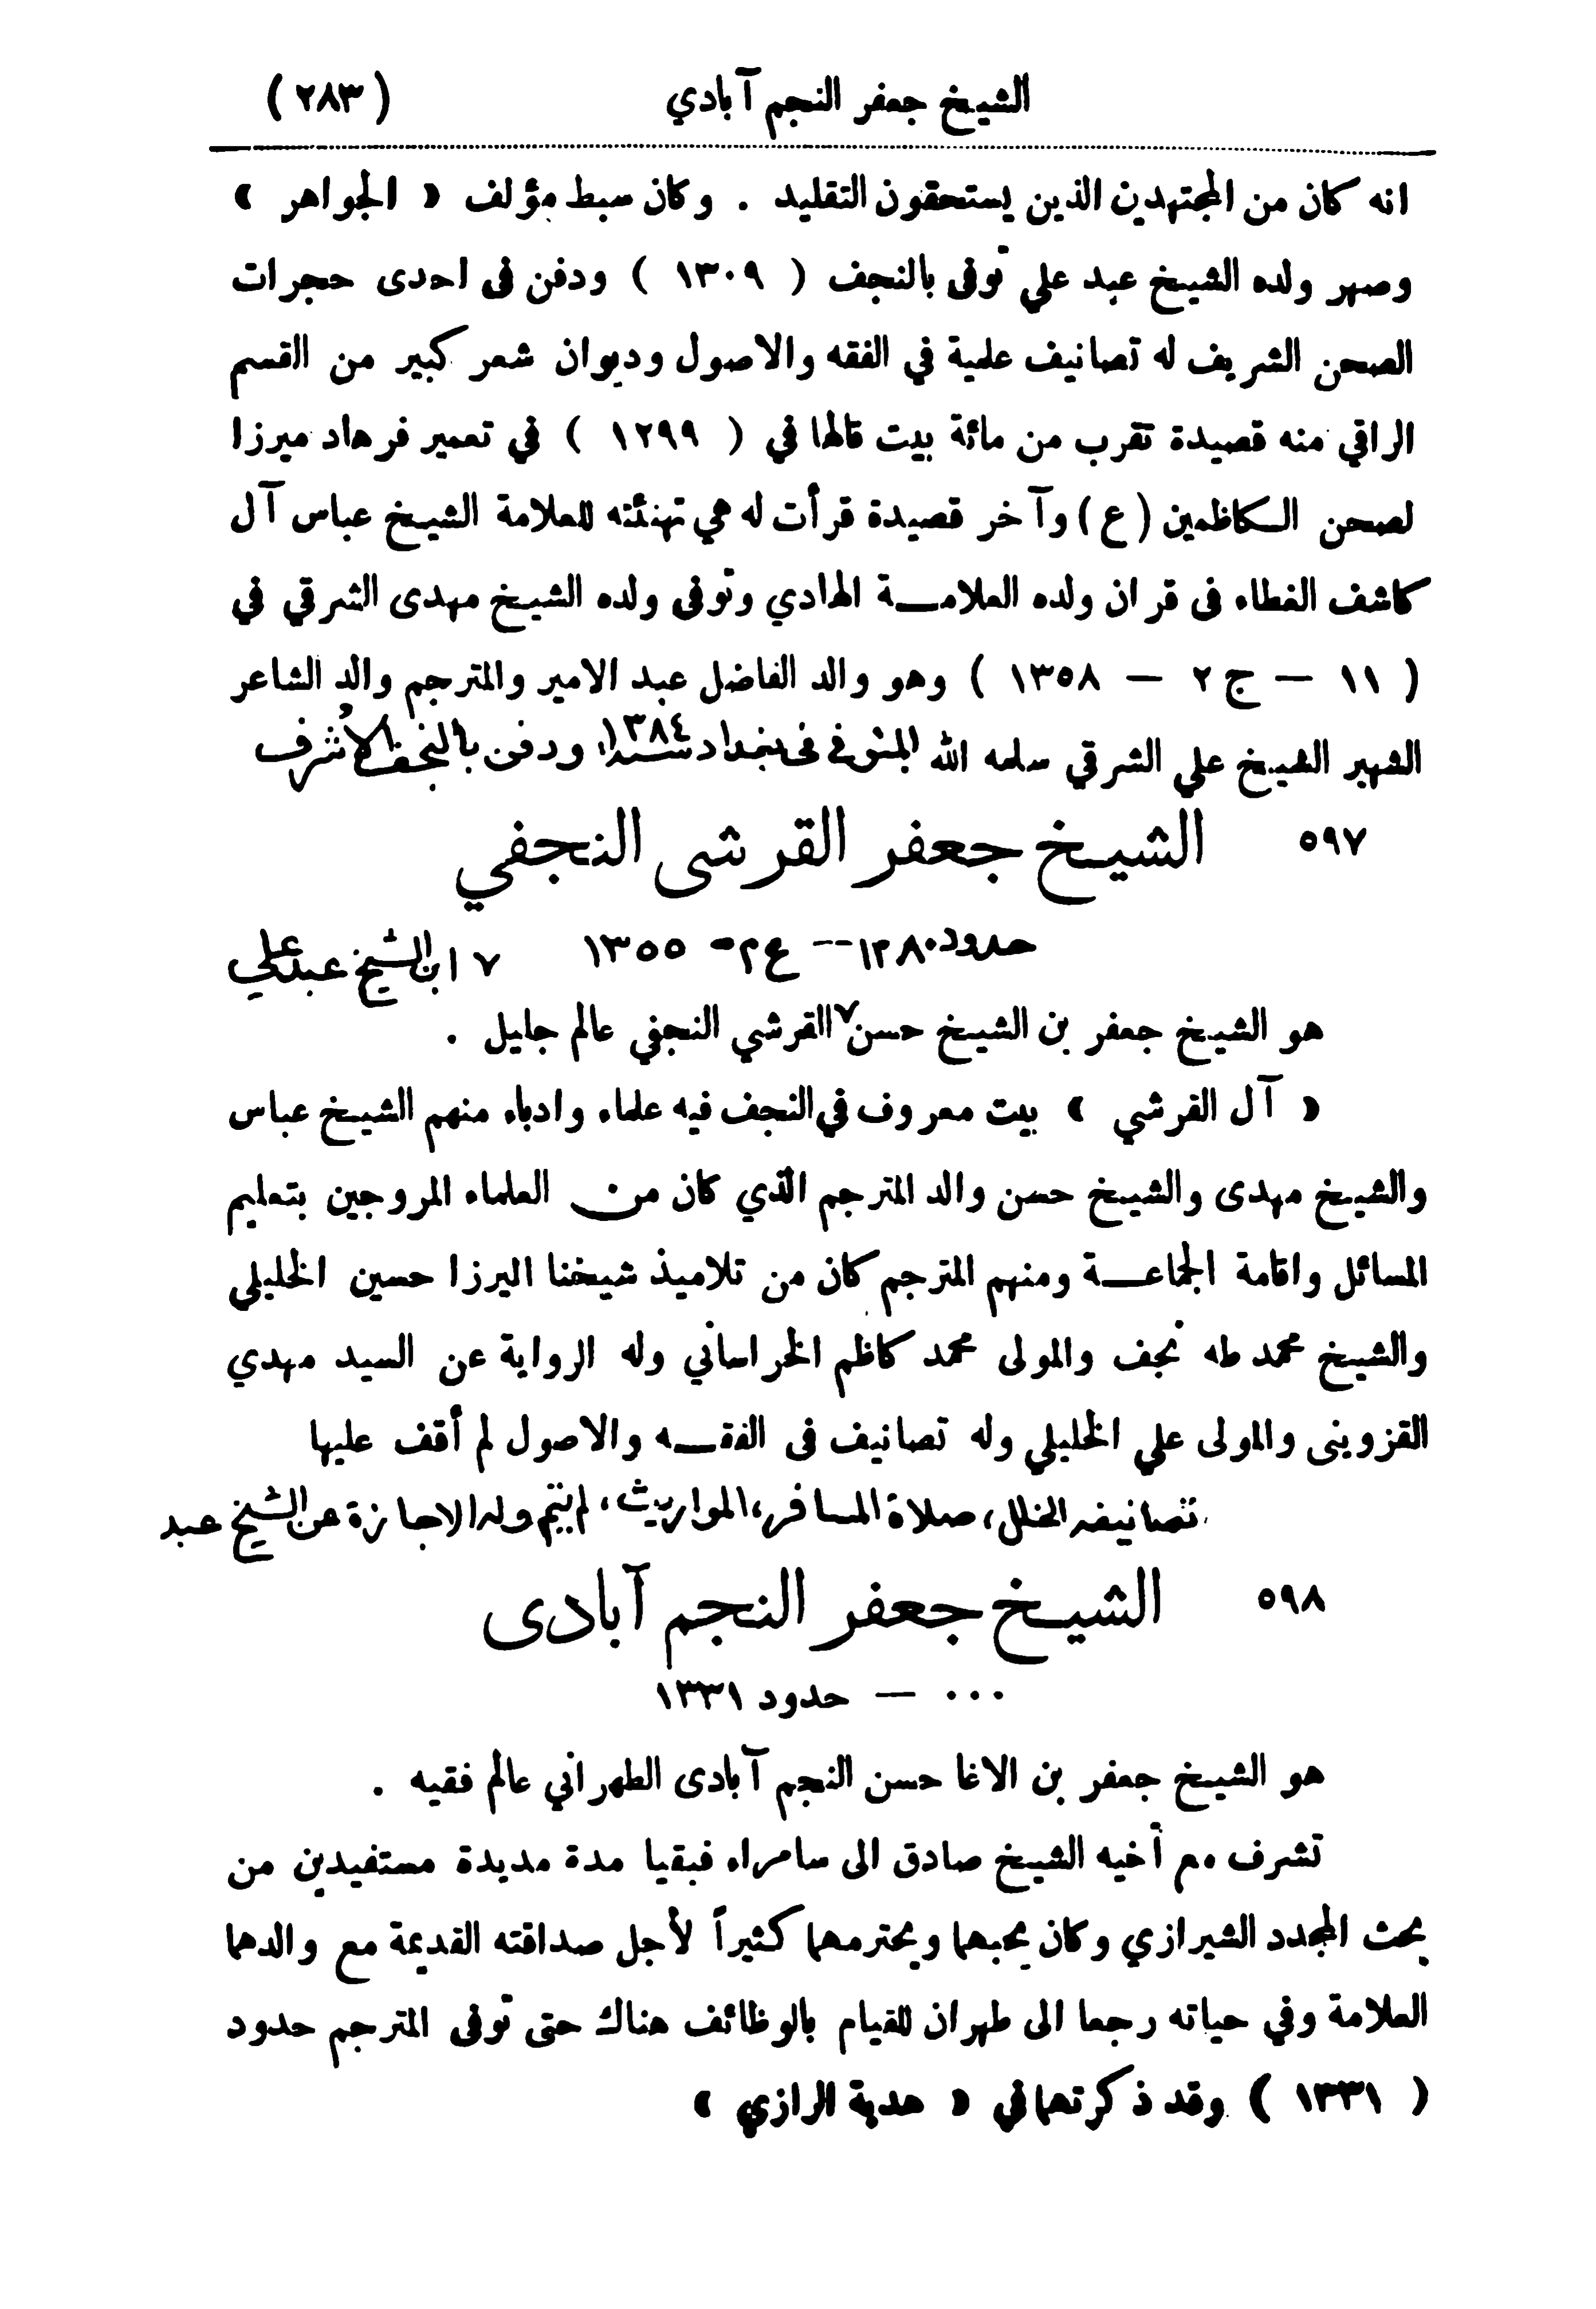 الشيخ جعفر النجم آبادي (٢٨٣)
انه كان من المجتهدين الذين يستحقون التقليد . وكان سبط مؤلف « الجواهر »
وصهر ولده الشيخ عبد علي توفى بالنجف ( ١٣٠٩ ) ودفن فى احدى حجرات
الصحن الشريف له تصانيف علمية في الفقه والاصول وديوان شعر كبير من القسم
الراقي منه قصيدة تقرب من مائة بيت قالها في ( ١٢٩٩ ) في تعمير فرهاد ميرزا
لصحن الكاظمين (ع) وآخر قصيدة قرأت له هي تهنئته للعلامة الشيخ عباس آل
كاشف الغطاء فى قران ولده العلامة الهادي وتوفى ولده الشيخ مهدى الشرقي في
( ١١ — ج ٢ — ١٣٥٨ ) وهو والد الفاضل عبد الامير والمترجم والد الشاعر
الشهير الشيخ علي الشرقي سلمه الله المتوفى فى بغداد سنة ١٣٨٤ ودفن بالنجف الأشرف
٥٩٧ الشيخ جعفر القرشى النجفي
حدود ١٢٨٠ -- ع ٢ - ١٣٥٥ ٧ ابن الشيخ عبد علي
هو الشيخ جعفر بن الشيخ حسن ٧ القرشي النجفي عالم جليل .
« آل القرشي » بيت معروف في النجف فيه علماء وادباء منهم الشيخ عباس
والشيخ مهدى والشيخ حسن والد المترجم الذي كان من العلماء المروجين بتعليم
المسائل واقامة الجماعة ومنهم المترجم كان من تلاميذ شيخنا اليرزا حسين الخليلي
والشيخ محمد طه نجف والمولى محمد كاظم الخراساني وله الرواية عن السيد مهدي
القزوينى والمولى علي الخليلي وله تصانيف فى الفقه والاصول لم أقف عليها
تصانيفه الخلل، صلاة المسافر، المواريث، لم يتم وله الاجازة عن الشيخ عبد
٥٩٨ الشيخ جعفر النجم آبادى
٠٠٠ — حدود ١٣٣١
هو الشيخ جعفر بن الاغا حسن النجم آبادى الطهراني عالم فقيه .
تشرف مع أخيه الشيخ صادق الى سامراء فبقيا مدة مديدة مستفيدين من
بحث المجدد الشيرازي وكان يحبهما ويحترمهما كثيراً لأجل صداقته القديمة مع والدهما
العلامة وفي حياته رجعا الى طهران للقيام بالوظائف هناك حتى توفى المترجم حدود
( ١٣٣١ ) وقد ذكرتهما في « هدية الرازي »